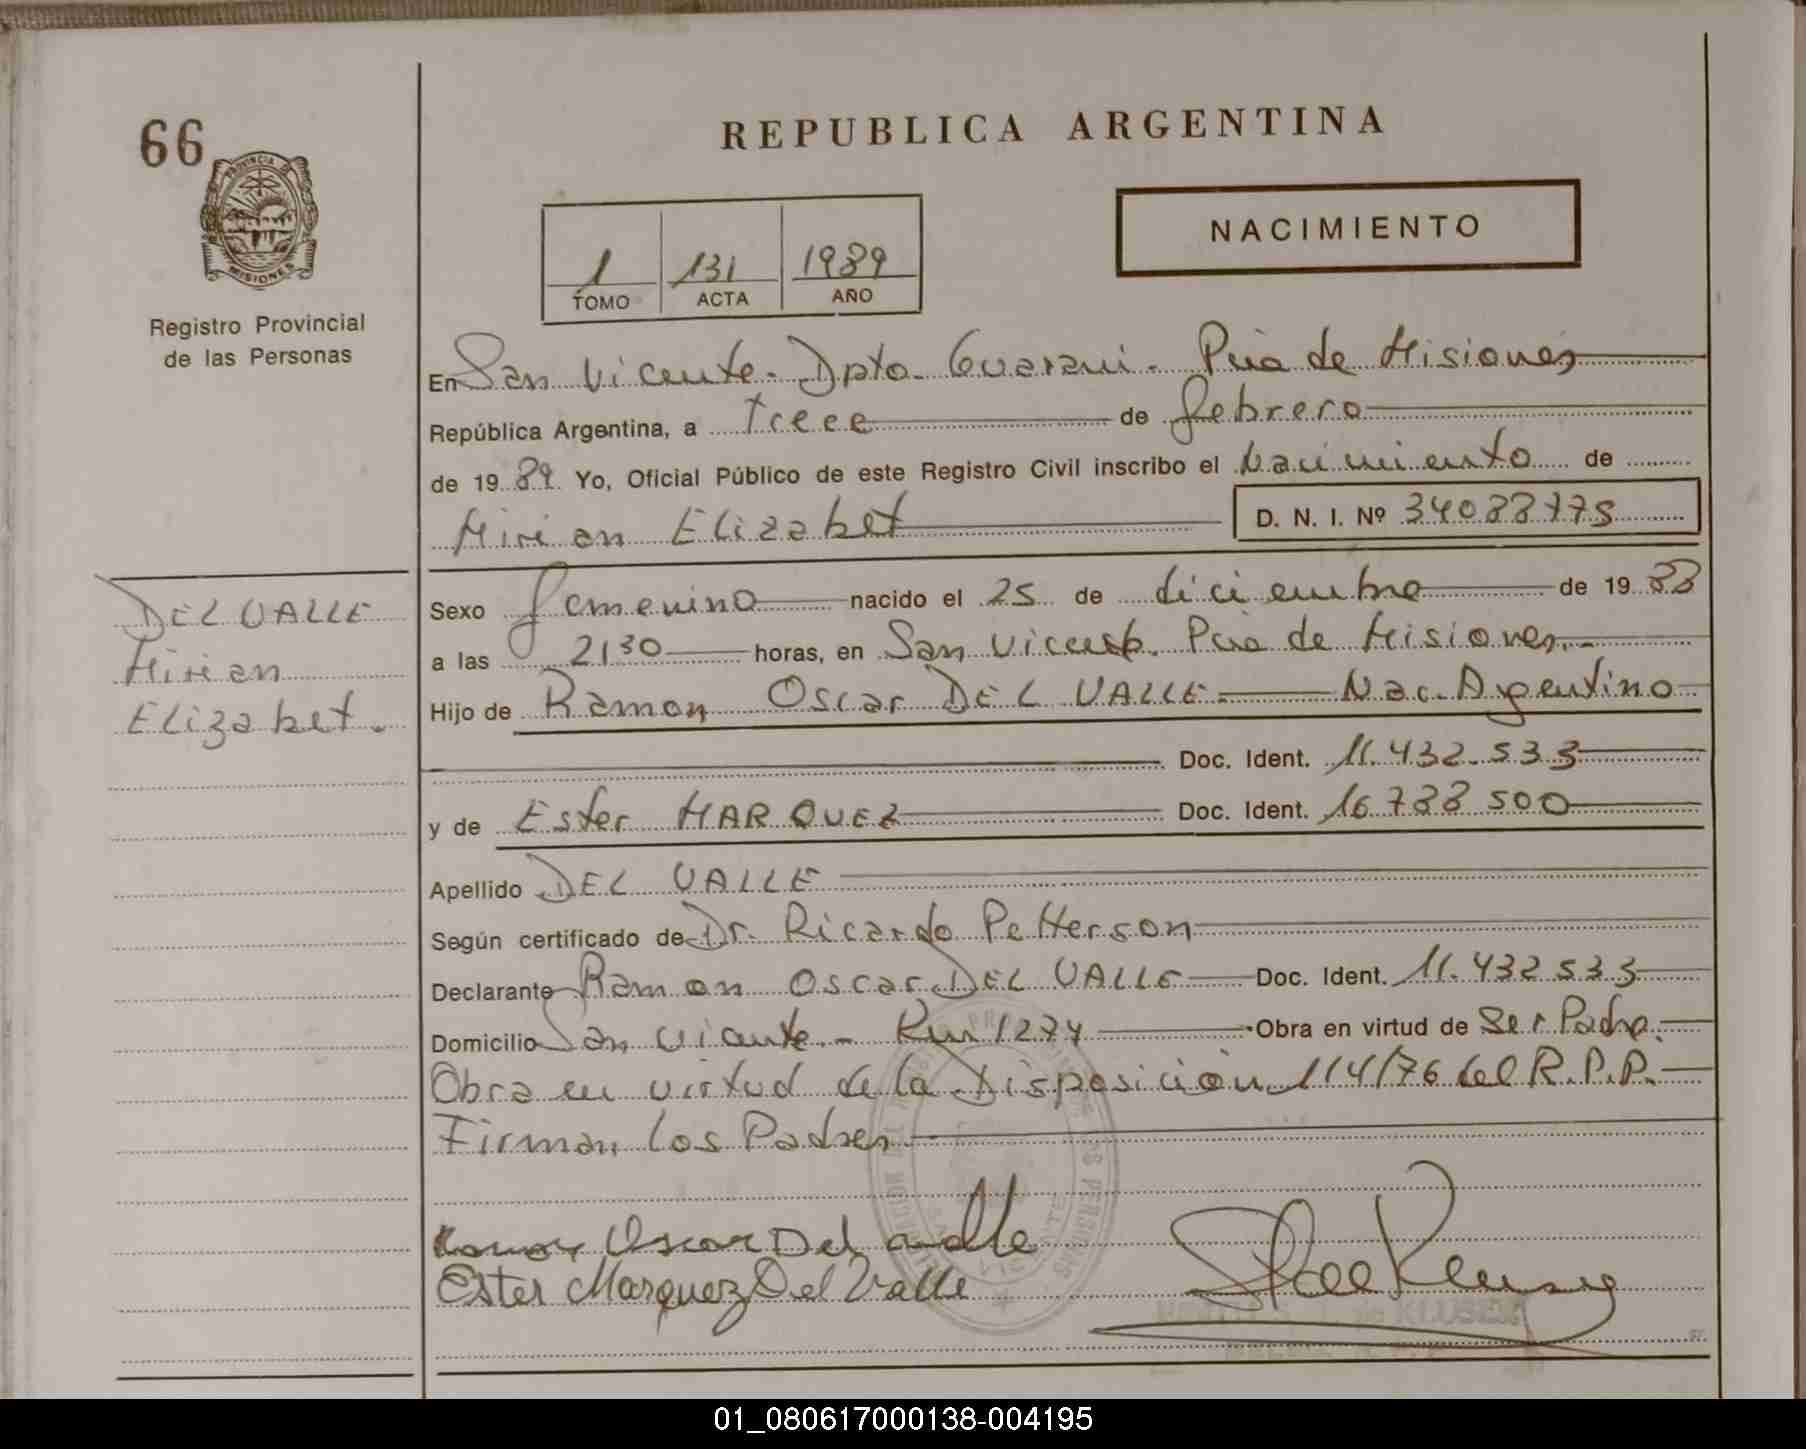 66
PROVINCIA DE
MISIONES
Registro Provincial
de las Personas
REPUBLICA ARGENTINA
NACIMIENTO
1 131 1989
TOMO ACTA AÑO
En San Vicente - Dpto. Guarani - Pcia de Misiones
República Argentina, a trece de febrero
de 1989 Yo, Oficial Público de este Registro Civil inscribo el Nacimiento de
Mirian Elizabet D. N. I. Nº 34088775
DEL VALLE
Mirian
Elizabet.
Sexo femenino nacido el 25 de diciembre de 1988
a las 2130 horas, en San Vicente. Pcia de Misiones.-
Hijo de Ramon Oscar DEL VALLE - Nac. Argentino
Doc. Ident. 11.432.533
y de Ester MARQUEZ Doc. Ident. 16.788 500
Apellido DEL VALLE
Según certificado de Dr. Ricardo Petterson
Declarante Ramon Oscar DEL VALLE Doc. Ident. 11.432 533
Domicilio San Vicente.- Km 1274 Obra en virtud de Ser Padre.
Obra en virtud de la Disposición 114/76 del R.P.P.
Firman los Padres
Ramon Oscar Del Valle
Ester Marquez Del Valle
01_080617000138-004195